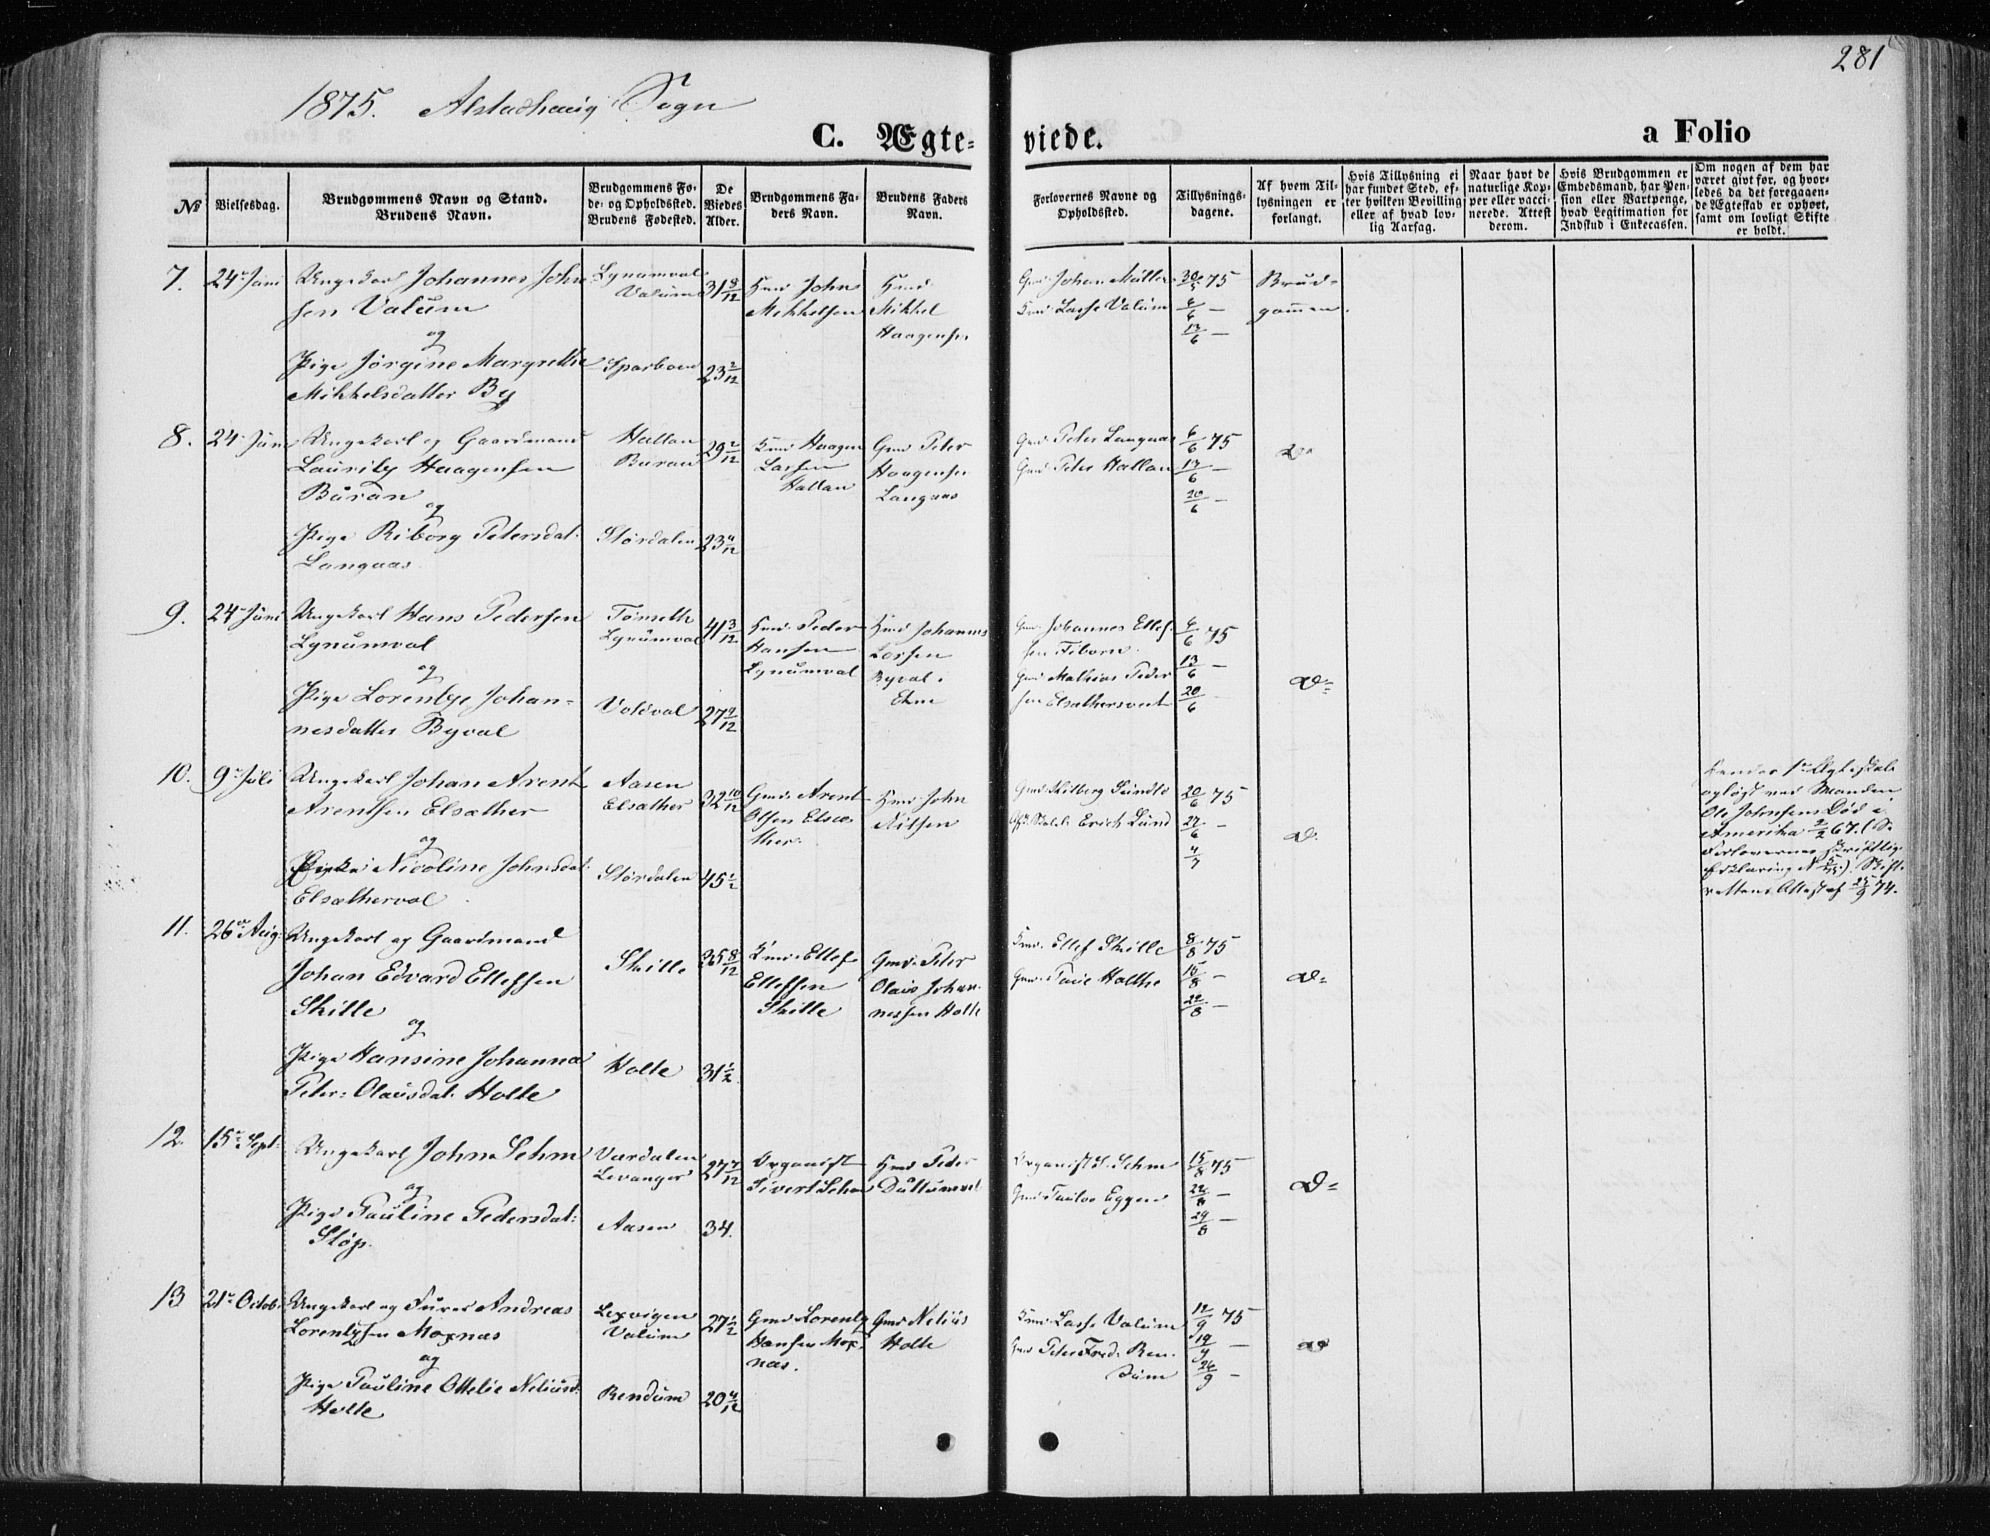 281
1875. Alstadhaug Sogn
C. Ægte-
viede.
a Folio
№
Vielsesdag.
Brudgommens Navn og Stand.
Brudens Navn.
Brudgommens Fø-
de- og Opholdssted.
Brudens Fødested.
De
Viedes
Alder.
Brudgommens Fa-
ders Navn.
Brudens Faders
Navn.
Forlovernes Navne og
Opholdssted.
Tillysnings-
dagene.
Af hvem Til-
lysningen er
forlangt.
Hvis Tillysning ei
har fundet Sted, ef-
ter hvilken Bevilling
eller af hvad lov-
lig Aarsag.
Naar havt de
naturlige Kop-
per eller vacci-
nerede. Attest
derom.
Hvis Brudgommen er
Embedsmand, har Pen-
sion eller Vartpenge,
hvad Legitimation for
Indskud i Enkecassen.
Om nogen af dem har
været givt før, og hvor-
ledes da det foregaaen-
de Ægteskab er ophørt,
samt om lovligt Skifte
er holdt.
7. 24 Juni Ungekarl Johannes John
sen Valum
og
Pige Jørgine Margrethe
Mikkelsdatter By
Lynumval
Valum
Sparboen
31 8/12
23 2/12
Hmd John
Mikkelsen
Hmd
Mikkel
Haagensen
Gmd Johan Müller
Kmd Lasse Valum
30/5 75
6/6 —
13/6 —
Brud-
gommen.
8. 24 Juni Ungekarl og Gaardmand
Lauritz Haagensen
Buran
og
Pige Riborg Petersdat.
Langaas
Hallan
Buran
Størdalen
29 2/12
23 4/12
Kmd Haagen
Larsen
Hallan
Gmd Peter
Haagensen
Langaas
Gmd Peter Langaas
Gmd Peter Hallan
6/6 75
13/6 —
20/6 —
Do
9. 24 Juni Ungekarl Hans Pedersen
Lynumval
og
Pige Lorentze Johan-
nesdatter Byval
Tømeth
Lynumval
Voldval
41 3/12
27 9/12
Hmd Peder
Hansen
Lynumval
Hmd Johannes
Larsen
Byval.
Gmd Johannes Ellef-
sen Fiborn.
Gmd Mathias Peder
sen Elsathersveet
6/6 75
13/6 —
20/6 —
Do
10. 9 Juli Ungekarl Johan Arent
Arentsen Elsather
og
Nicoline Johnsdat.
Elsatherval
Aasen
Elsather
Størdalen
32 10/12
45 1/2
Gmd Arent
Olsen Elsæ-
ther.
Hmd John
Nilsen
Erich Lund
20/6 75
27/6 —
4/7
Do
Hendes 1ste Ægteskab
opløst ved Manden
Ole Johnsens Død i
Amerika 2/2 67. (S.
Forlovernes skriftlig
Erklæring Skift-
rettens Attest af 25/9 74.
11. 26 Aug. Ungekarl og Gaardmand
Johan Edvard Ellefsen
Skille
og
Pige Hansine Johanna
Peter Olausdat. Holte
Skille
Holte
25 8/12
31 1/2
Kmd. Ellef
Ellefsen
Skille
Gmd. Peter
Olaus Johan-
nessen Holte
Kmd. Ellef Skille
Gmd. Holthe
8/8 75
15/8 —
22/8 —
Do
12. 15 Sept. Ungekarl John Sehm
og
Pige Pauline Pedersdat.
Støp
Værdalen
Levanger
Aasen
27 7/12
34.
Organist
Sivert Sehm
Hmd Peder
Dullumval
Organist S. Sehm
Gmd Paulus Eggen
15/8 75
22/8 —
29/8 —
Do
13 21 Octob. Ungekarl og Furer Andreas
Lorentzsen Moxnæs
og
Pige Pauline Ottelie Neliusd.
Holte
Lexvigen
Valum
Rendum
27 1/2
20 4/12
Gmd Lorentz
Hansen Mox-
næs.
Gmd Nelius
Holte
Kmd Lasse Valum
Gmd Peter Fred. Ren-
dum
12/9 75
19/9 —
26/9 —
Do